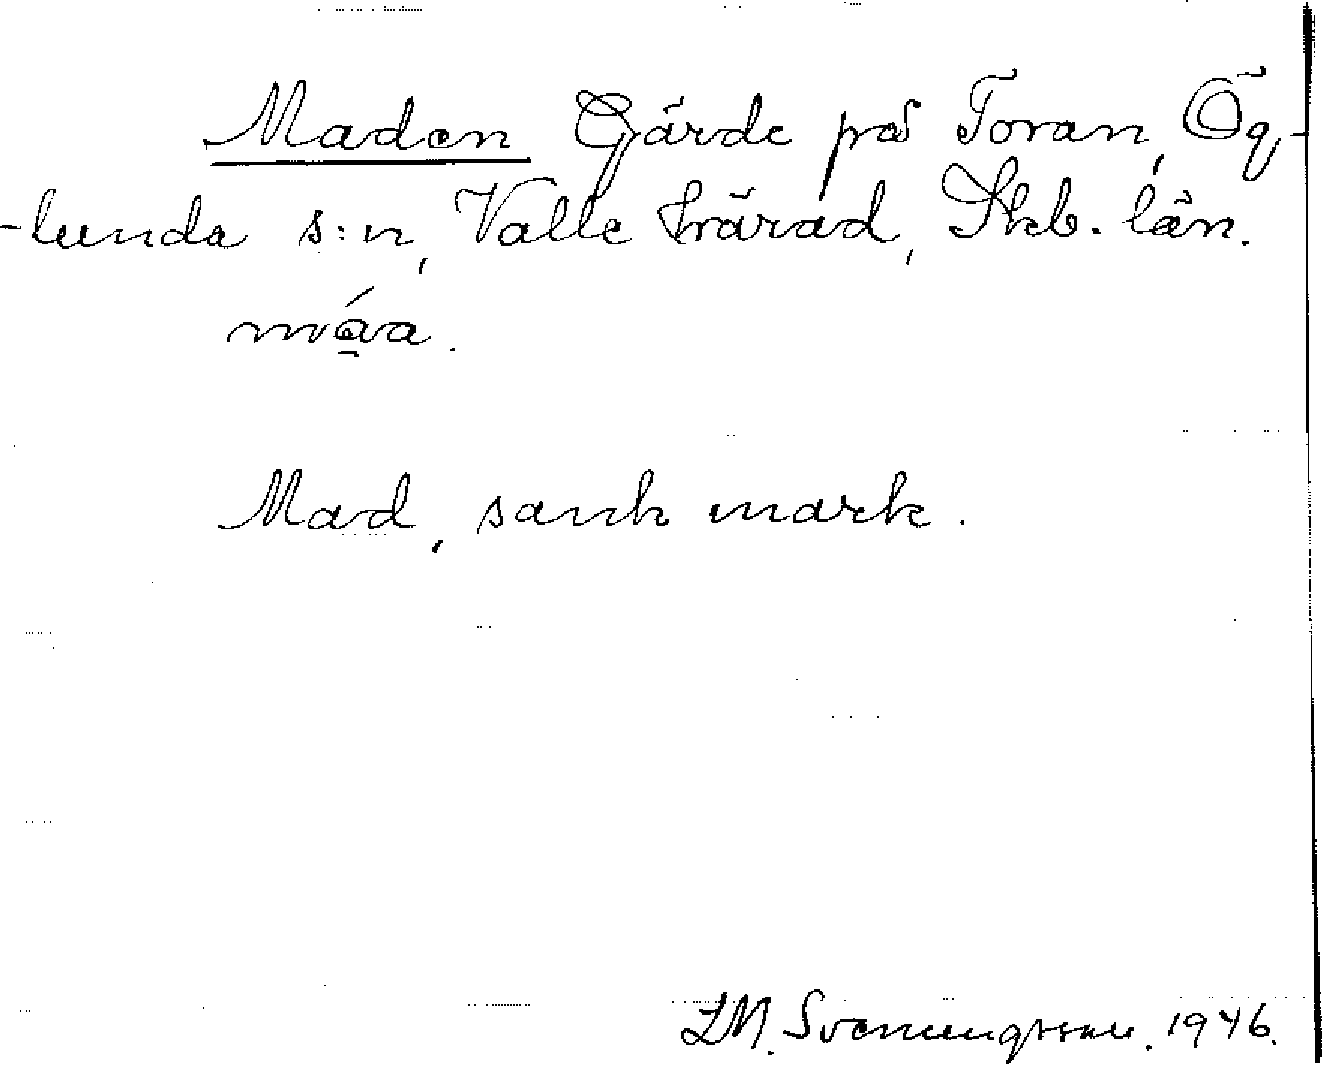 Maden Gärde på Toran, Ög-
-lunda s:n, Valle härad, Skb. län.
má̱a.
Mad, sank mark.
L.M. Svenungsson. 1946.